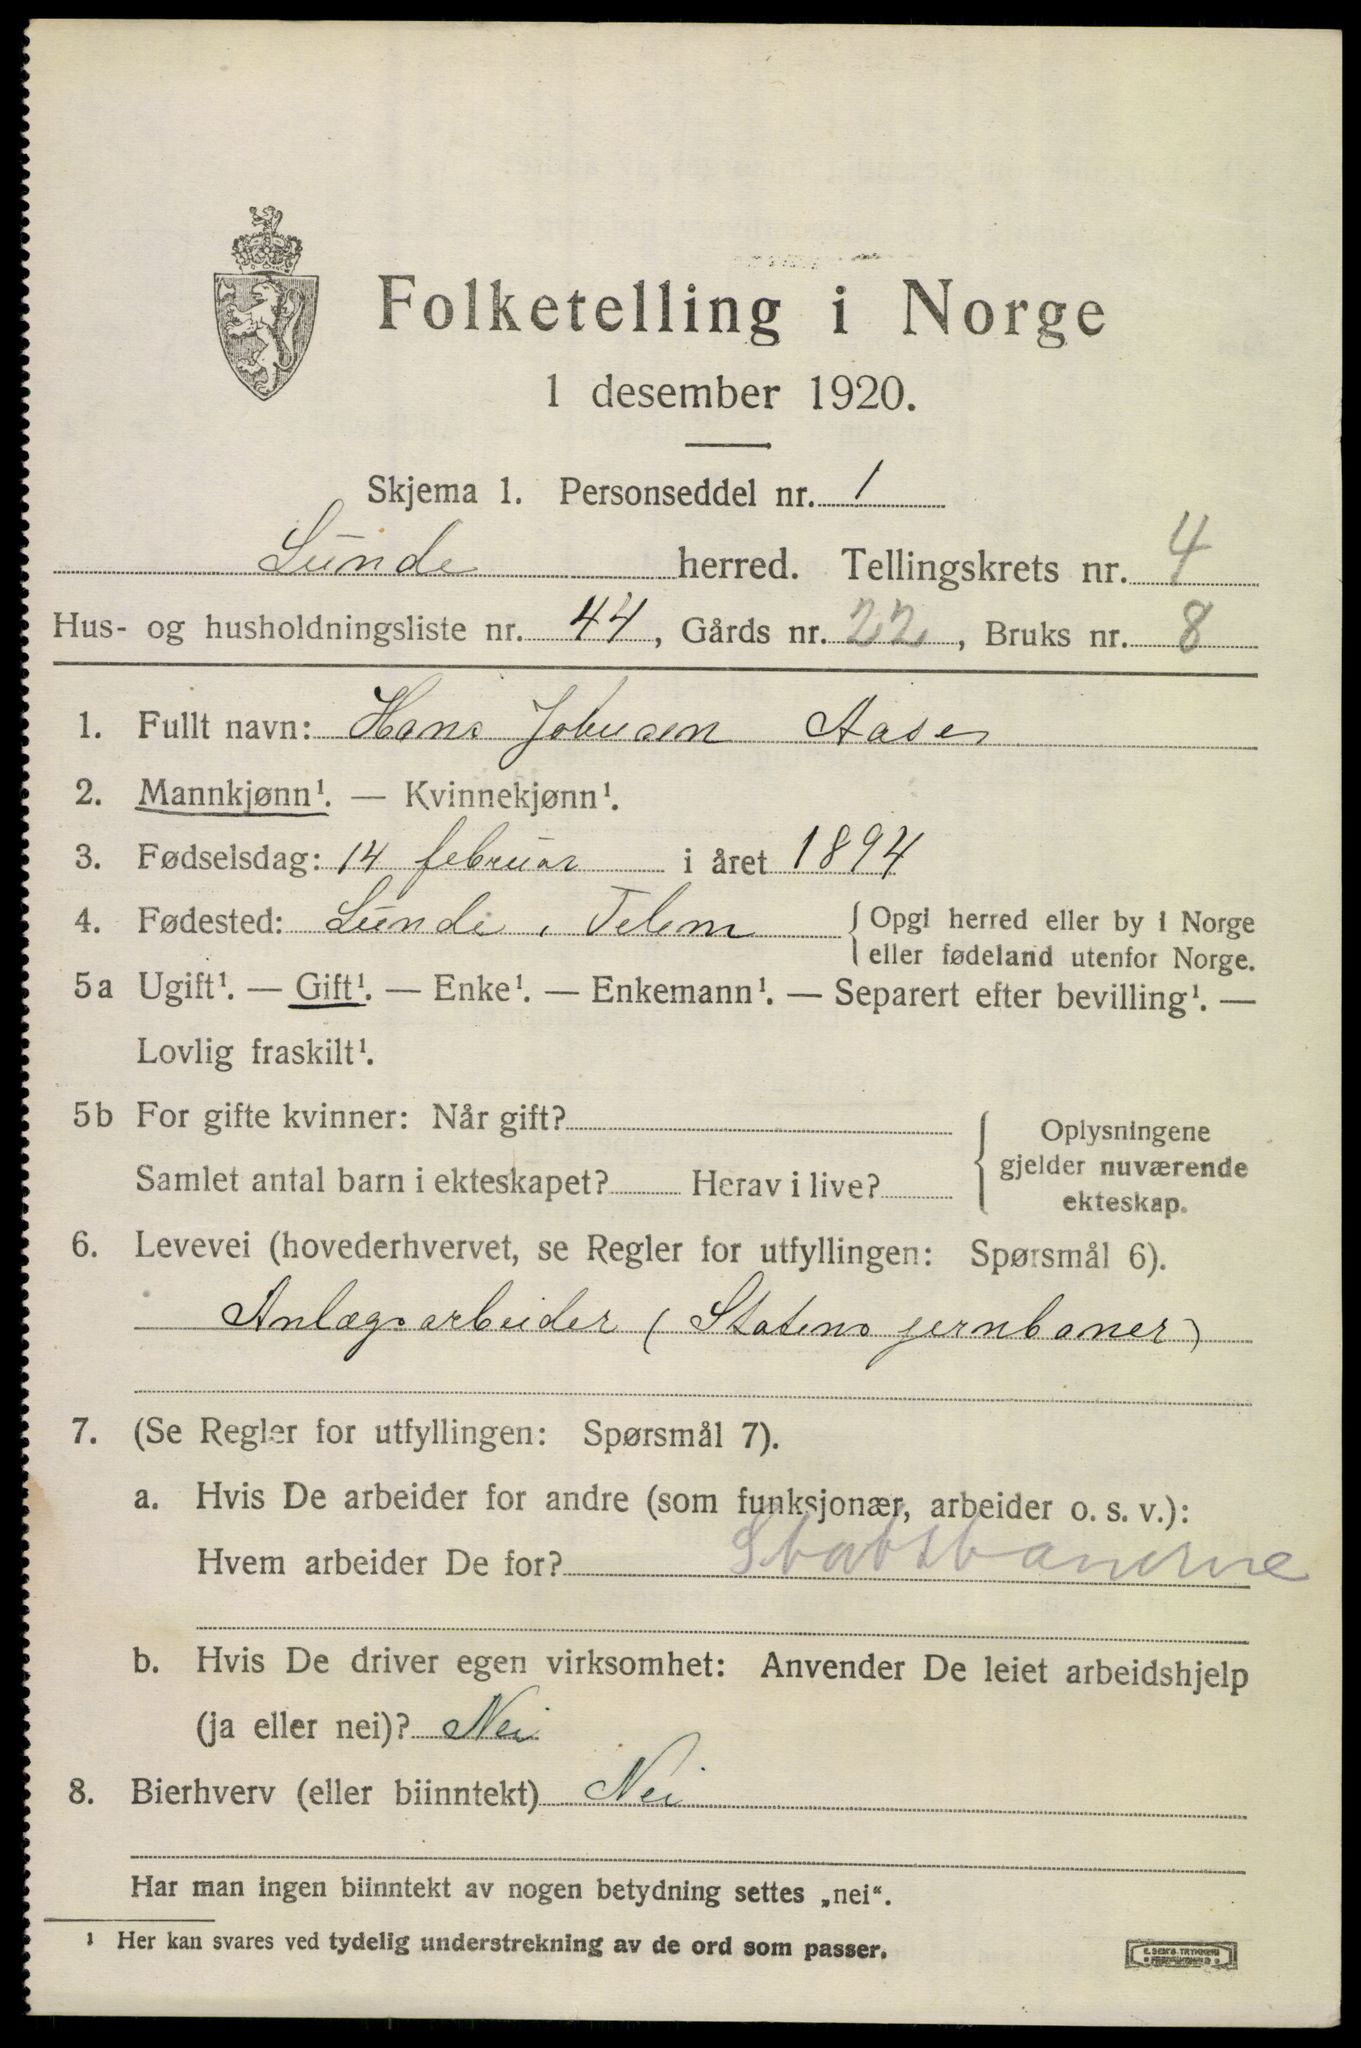 Folketelling i Norge
1 desember 1920.
Skjema 1. Personseddel nr. 1
Lunde herred. Tellingskrets nr. 4
Hus- og husholdningsliste nr. 44, Gårds nr. 22, Bruks nr. 8
1. Fullt navn: Hans Johnsen Aasen
2. Mannkjønn¹. — Kvinnekjønn¹.
3. Fødselsdag: 14 februar i året 1894
4. Fødested: Lunde, Telem { Opgi herred eller by i Norge
eller fødeland utenfor Norge.
5a Ugift¹. — Gift¹. — Enke¹. — Enkemann¹. — Separert efter bevilling¹. —
Lovlig fraskilt¹.
5b For gifte kvinner: Når gift?
Samlet antal barn i ekteskapet? Herav i live?
Oplysningene
gjelder nuværende
ekteskap.
6. Levevei (hovederhvervet, se Regler for utfyllingen: Spørsmål 6).
Anlægsarbeider (Statens jernbaner)
7. (Se Regler for utfyllingen: Spørsmål 7).
a. Hvis De arbeider for andre (som funksjonær, arbeider o. s. v.):
Hvem arbeider De for? Statsbanerne
b. Hvis De driver egen virksomhet: Anvender De leiet arbeidshjelp
(ja eller nei)? Nei
8. Bierhverv (eller biinntekt) Nei
Har man ingen biinntekt av nogen betydning settes „nei“.
¹ Her kan svares ved tydelig understrekning av de ord som passer.
E. SEM'S TRYKKERI
FREDRIKSHALD